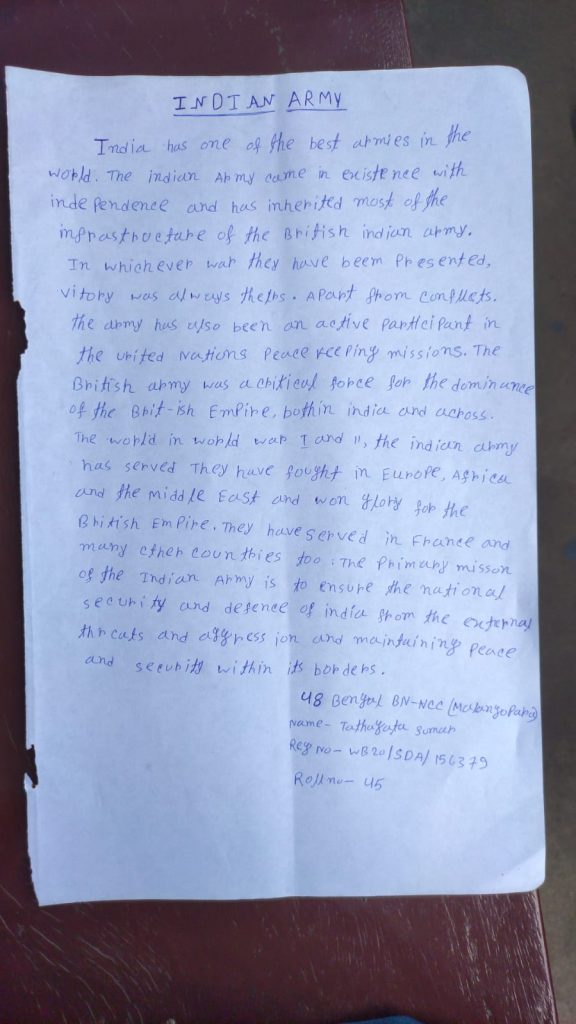 INDIAN ARMY
India has one of the best armies in the
world. The indian Army came in existence with
independence and has inherited most of the
infrastructure of the British indian army.
In whichever war they have beem Presented,
vitory was always theirs. Apart from conflicts.
the army has also been an active participant in
the united Nations Peace keeping missions. The
British army was a critical force for the dominance
of the Brit-ish Empire, bothin india and across.
The world in world war I and 11, the indian army
has served They have fought in Europe, Africa
and the Middle East and won glory for the
British Empire. They have served in France and
many other countries too. The Primary misson
of the Indian Army is to ensure the national
security and defence of india from the external
threats and aggress ion and maintaining Peace
and security within its borders.
48 Bengal BN-NCC (Malangopara)
Name- Tathagata Sumar
Reg No- WB20/SDA/156379
Roll no- 45